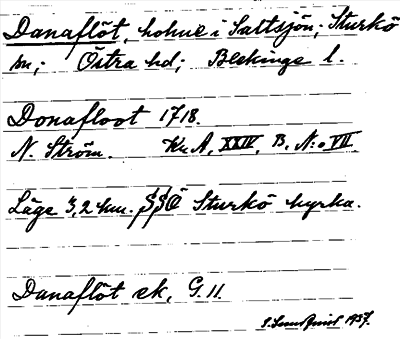 Danaflöt, holme i Saltsjön; Sturkö
sn; Östra hd; Blekinge l.
Donafloot 1718.
N. Ström. Kr. A, XXIV, B, N:o VII
Läge 3,2 km. SSÖ Sturkö kyrka.
Danaflöt ek, G. 11.
S. Lundquist 1937.